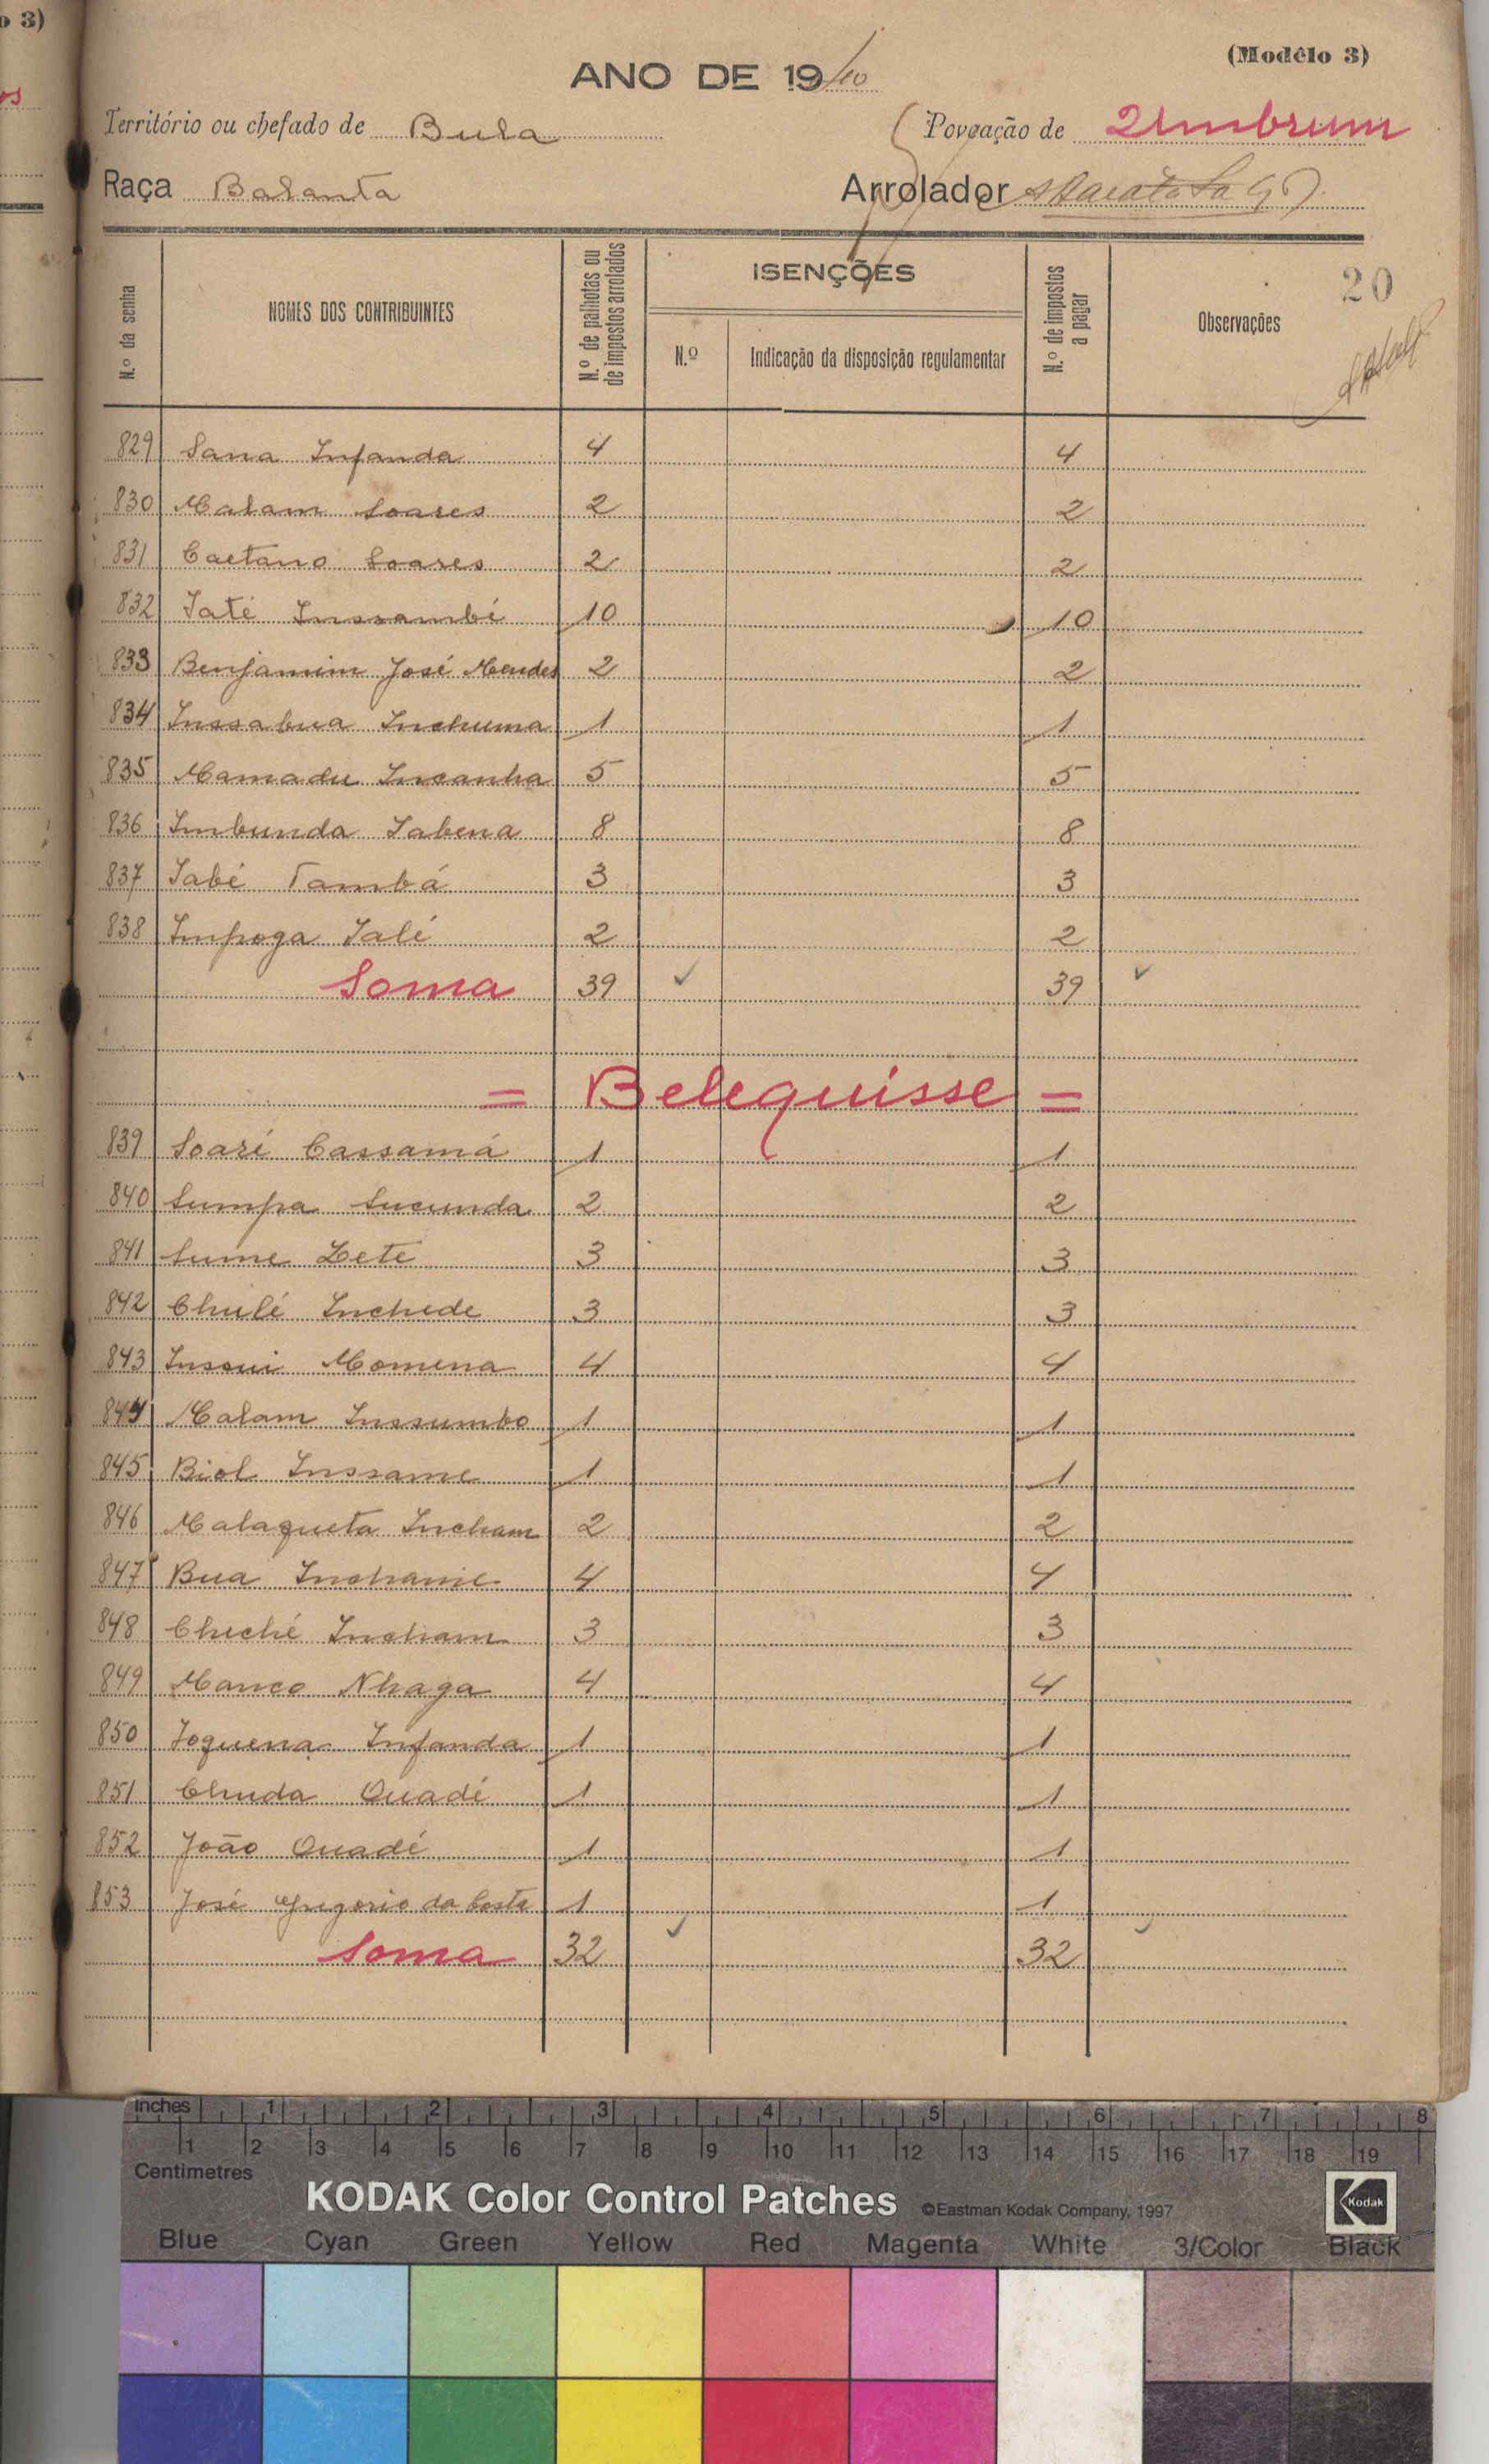 o 3)
(Modêlo 3)
ANO DE 1940
Território ou chefado de Bula
Povoação de Umbrum
Raça Balanta
Arrolador
20
N.º da senha
NOMES DOS CONTRIBUINTES
N.º de palhotas ou de impostos arrolados
ISENÇÕES
N.º
Indicação da disposição regulamentar
N.º de impostos a pagar
Observações
829 Sana Infanda 4 4
830 Malam Soares 2 2
831 Caetano Soares 2 2
832 Iaté Inssambé 10 10
833 Benjamim José Mendes 2 2
834 Inssabua Inchuma 1 1
835 Mamadu Incanha 5 5
836 Imbunda Iabena 8 8
837 Iabé Tambá 3 3
838 Impoga Ialé 2 2
Soma 39 ✓ 39 ✓
= Belequisse =
839 Soaré Cassamá 1 1
840 Sumpa Sucunda 2 2
841 Sume Zete 3 3
842 Chulé Inchede 3 3
843 Insoui Momena 4 4
844 Malam Inssumbo 1 1
845 Biol Inssame 1 1
846 Malagueta Incham 2 2
847 Bua Inchame 4 4
848 Cheché Incham 3 3
849 Manco Nhaga 4 4
850 Ioquena Infanda 1 1
851 Chuda Ouadé 1 1
852 João Ouadé 1 1
853 José Gregorio da Costa 1 1
Soma 32 ✓ 32 ✓
Inches 1 2 3 4 5 6 7 8
1 2 3 4 5 6 7 8 9 10 11 12 13 14 15 16 17 18 19
Centimetres
KODAK Color Control Patches ©Eastman Kodak Company, 1997 Kodak
Blue Cyan Green Yellow Red Magenta White 3/Color Black